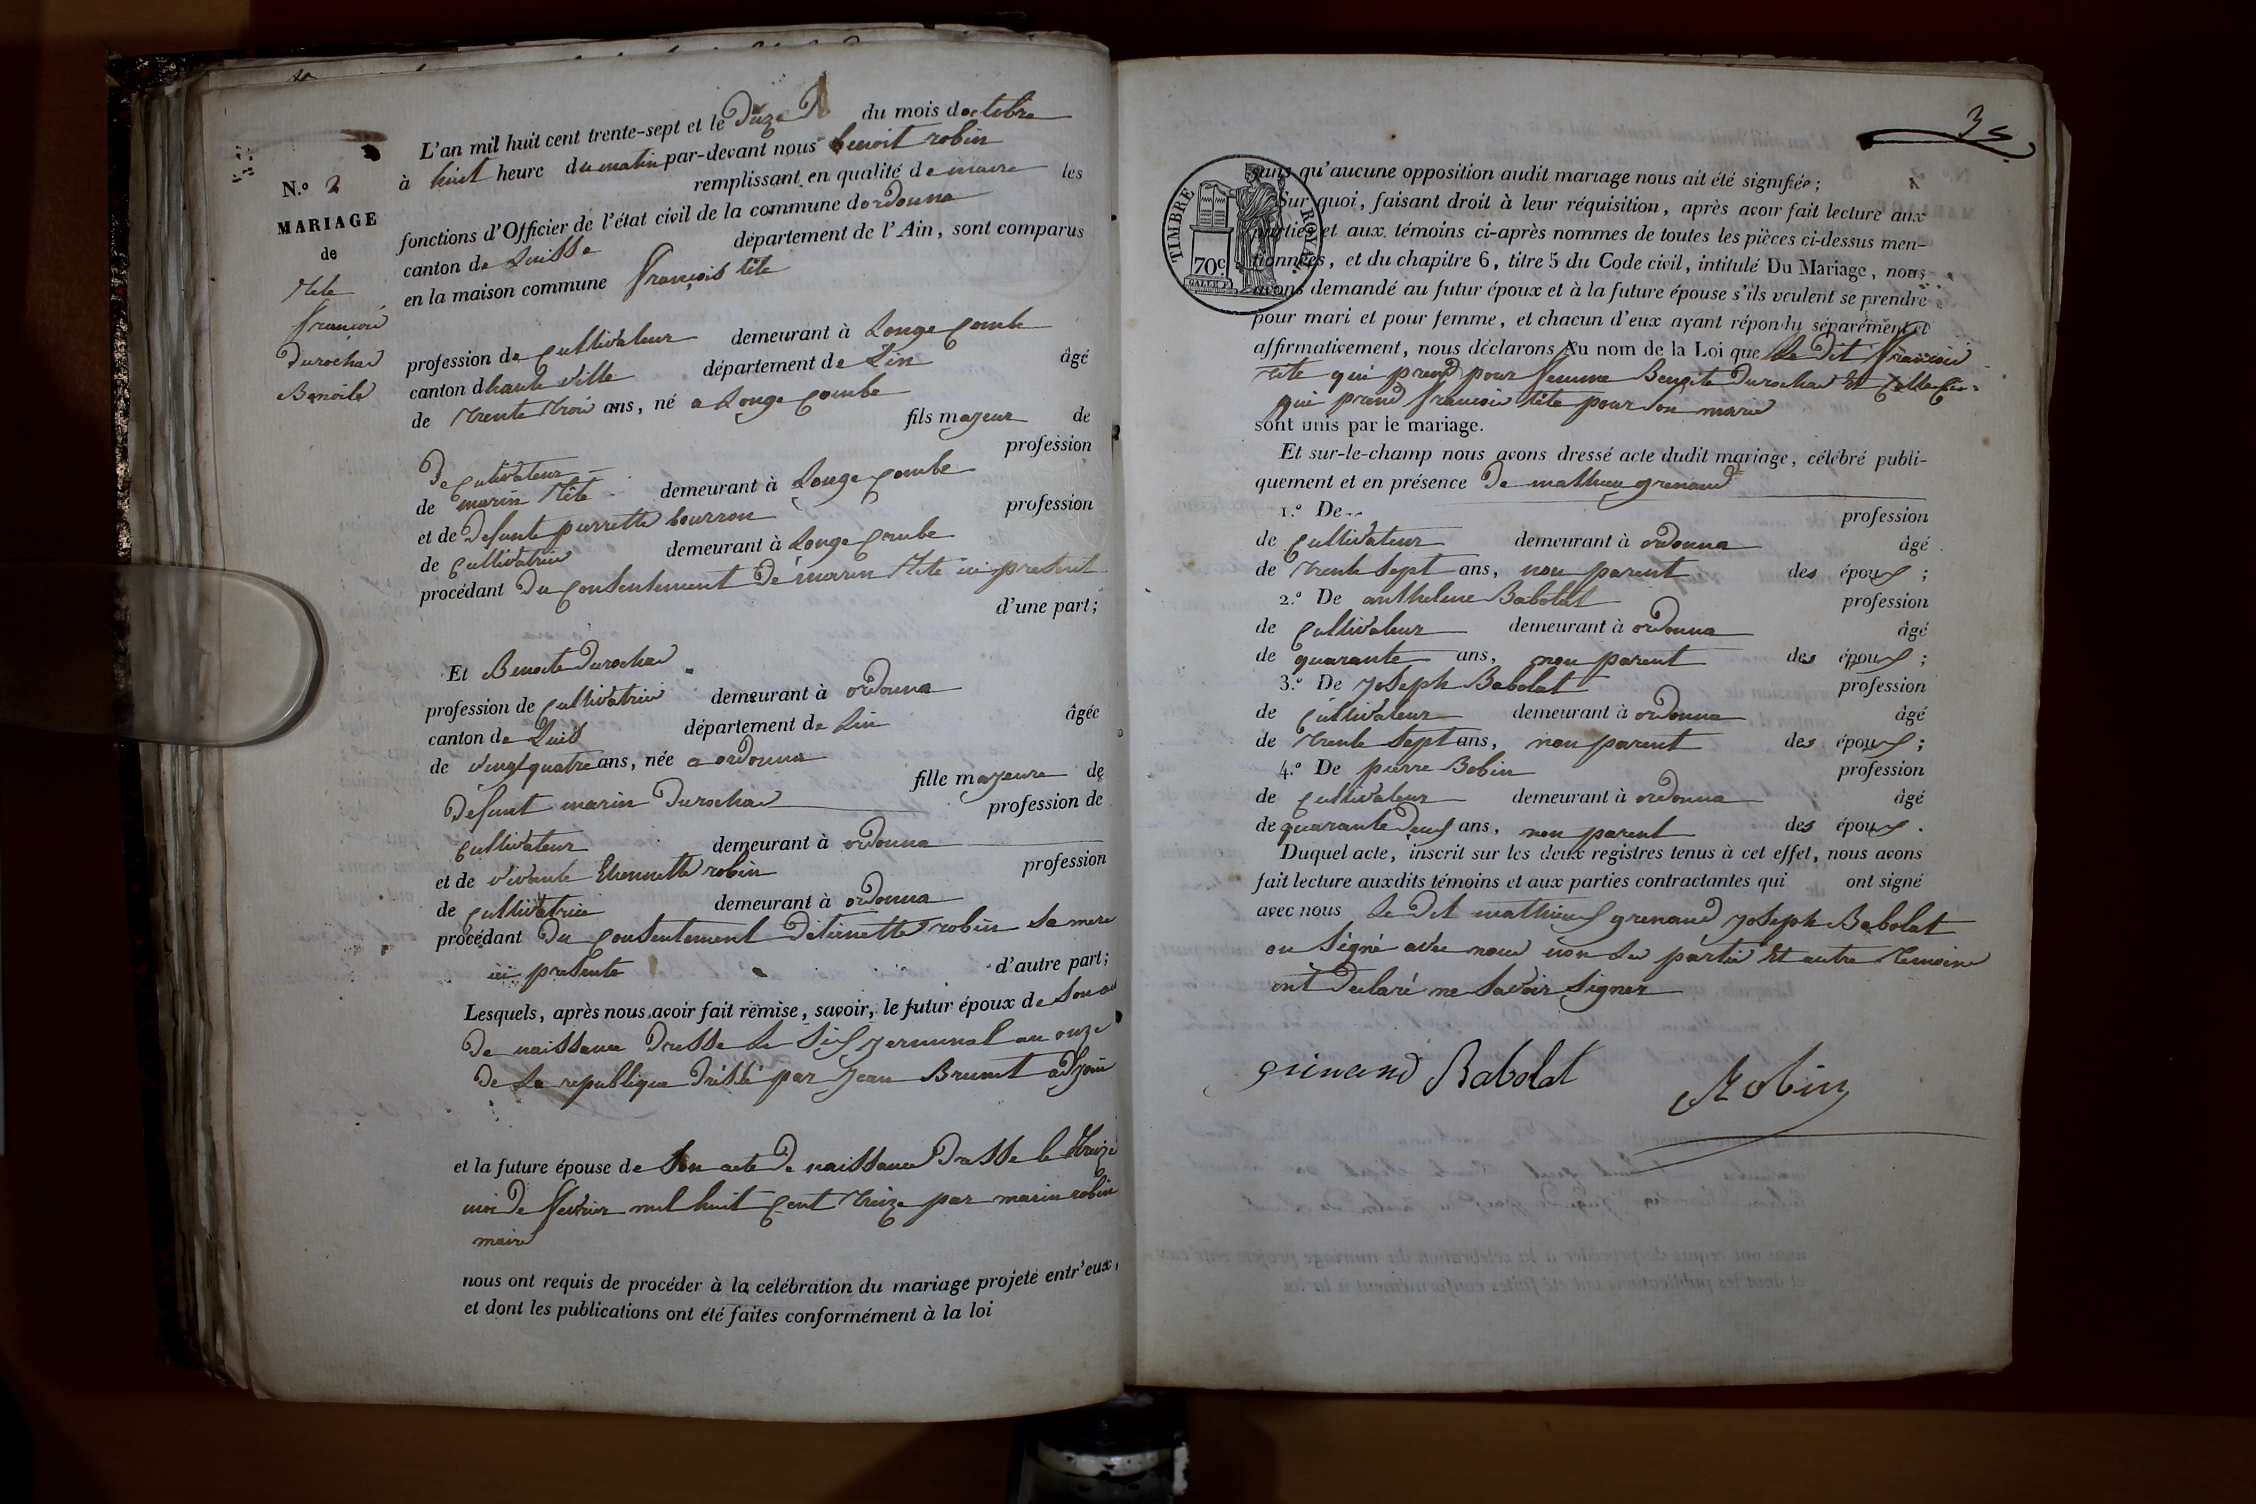 L'an mil huit cent trente-sept et le du mois doctobre
N.º 2
à huit heure du matin par-devant nous benoit robin
remplissant en qualité de maire les
MARIAGE
fonctions d'Officier de l'état civil de la commune dordonna
de
canton de Luisse département de l'Ain, sont comparus
tete
en la maison commune françois tête
françois
durochat
Benoite
profession de cultivateur demeurant à Longe combe
canton dhaute ville département de Lin âgé
de trente trois ans, né a Longe combe
fils majeur de
profession
De cultivateur
de marin tête demeurant à Longe combe
et de defunte pierrette bourron profession
de cultivatrice demeurant à Longe combe
procédant du consentement de marin tete ici present
d'une part;
Et Benoite durochat
profession de cultivatrice demeurant à ordonna
canton de Luis département de Lin âgée
de vingt quatre ans, née a ordonna
fille majeure de
defunt marin durochat profession de
cultivateur demeurant à ordonna
et de vivante Etiennette robin profession
de cultivatrice demeurant à ordonna
procédant du consentement detiennette robin sa mere
ici presente d'autre part;
Lesquels, après nous avoir fait remise, savoir, le futur époux de son
de naissance dresse le six germinal an onze
de la republique par jean Brunet
et la future épouse de son acte de naissance dresse le treize
moi de fevrier mil huit cent treize par marin robin
maire
nous ont requis de procéder à la célébration du mariage projeté entr'eux,
et dont les publications ont été faites conformément à la loi
TIMBRE ROYAL
70c
sans qu'aucune opposition audit mariage nous ait été signifiée;
Sur quoi, faisant droit à leur réquisition, après avoir fait lecture aux
parties et aux témoins ci-après nommes de toutes les pièces ci-dessus men-
tionnées, et du chapitre 6, titre 5 du Code civil, intitulé Du Mariage, nous
avons demandé au futur époux et à la future épouse s'ils veulent se prendre
pour mari et pour femme, et chacun d'eux ayant répondu séparément et
affirmativement, nous déclarons Au nom de la Loi que Le dit françois
tete qui prend pour femme Benoite durochat Et
qui prend françois tête pour son marie
sont unis par le mariage.
Et sur-le-champ nous avons dressé acte dudit mariage, célébré publi-
quement et en présence de mathieu grenand
1.º De profession
de cultivateur demeurant à ordonna âgé
de trente sept ans, non parent des époux;
2.º De anthelme Babolat profession
de cultivateur demeurant à ordonna âgé
de quarante ans, non parent des époux;
3.º De joseph Babolat profession
de cultivateur demeurant à ordonna âgé
de trente sept ans, non parent des époux;
4.º De pierre Bobin profession
de cultivateur demeurant à ordonna âgé
de quarante deux ans, non parent des époux.
Duquel acte, inscrit sur les deux registres tenus à cet effet, nous avons
fait lecture auxdits témoins et aux parties contractantes qui ont signé
avec nous Le dit mathieu grenand joseph Babolat
on signé avec nous non les partie Et autre temoins
ont declaré ne savoir signer
grinand Babolat Robin